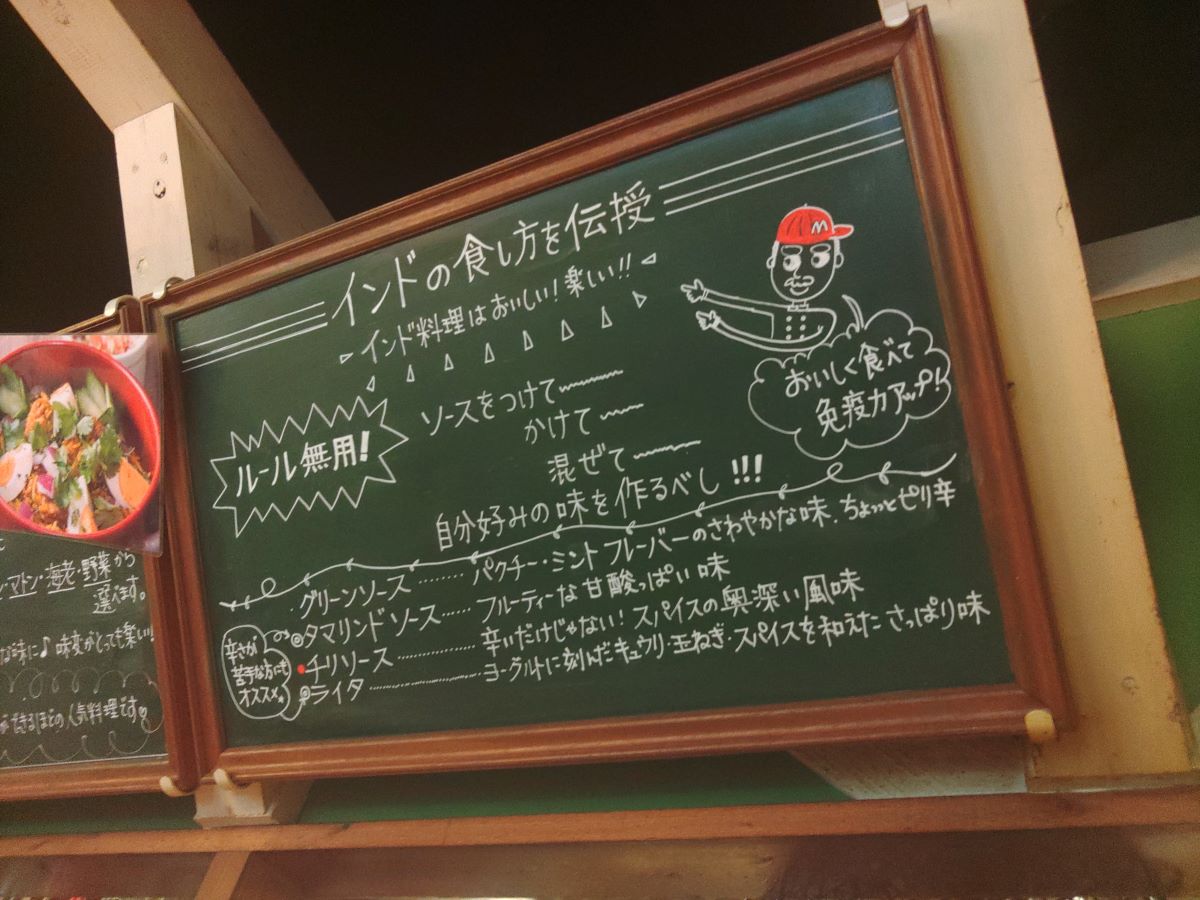 インドの食し方を伝授
インド料理はおいしい!楽しい!!
M
おいしく食べて
免疫力アップ!
ルール無用!
ソースをつけて
かけて
混ぜて
自分好みの味を作るべし!!!
グリーンソース ········ パクチー・ミントフレーバーのさわやかな味.ちょっとピリ辛
◎タマリンドソース ······ フルーティーな甘酸っぱい味
チリソース ············ 辛いだけじゃない!スパイスの奥深い風味
◎ライタ ················ ヨーグルトに刻んだキュウリ・玉ねぎ・スパイスを和えたさっぱり味
辛さが
苦手な方にも
オススメ。
マトン・海老・野菜から
選べます。
な味に♪味変がとっても楽しい!
ができるほどの人気料理です